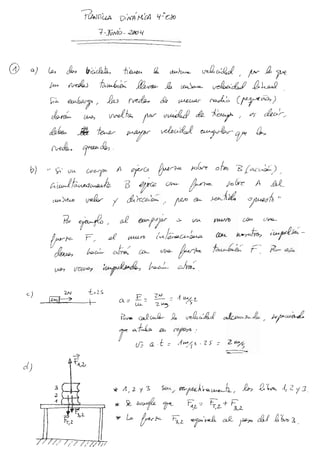 PLANTILLA DINÁMICA 4º ESO
7-JUNIO-2004
① a) Las dos bicicletas tienen la misma velocidad, por lo que
las ruedas también llevan la misma velocidad lineal.
Sin embargo, las ruedas de menor radio (pequeñas)
darán más vueltas por unidad de tiempo, es decir,
deben tener mayor velocidad angular que las
ruedas grandes.
b) - Si un cuerpo A ejerce fuerza sobre otro B (acción),
simultáneamente B ejerce una fuerza sobre A del
mismo valor y dirección, pero en sentido opuesto"
Por ejemplo, al empujar a un muro con una
fuerza F, el muro con nosotros
hacia atrás con una fuerza también F. Por eso
nos vemos impulsados hacia atrás
c) 2N t=2s
a = F/m = 2N/2kg = 1 m/s2
Para calcular la velocidad alcanzada, suponiendo
que estaba en reposo.
v = a·t = 1m/s2 · 2s = 2 m/s
d)
3
2
1
* 1, 2 y 3 son, respectivamente, los libros 1, 2 y 3.
* Se cumple que
* La fuerza F3,2 equivale al peso del libro 3.